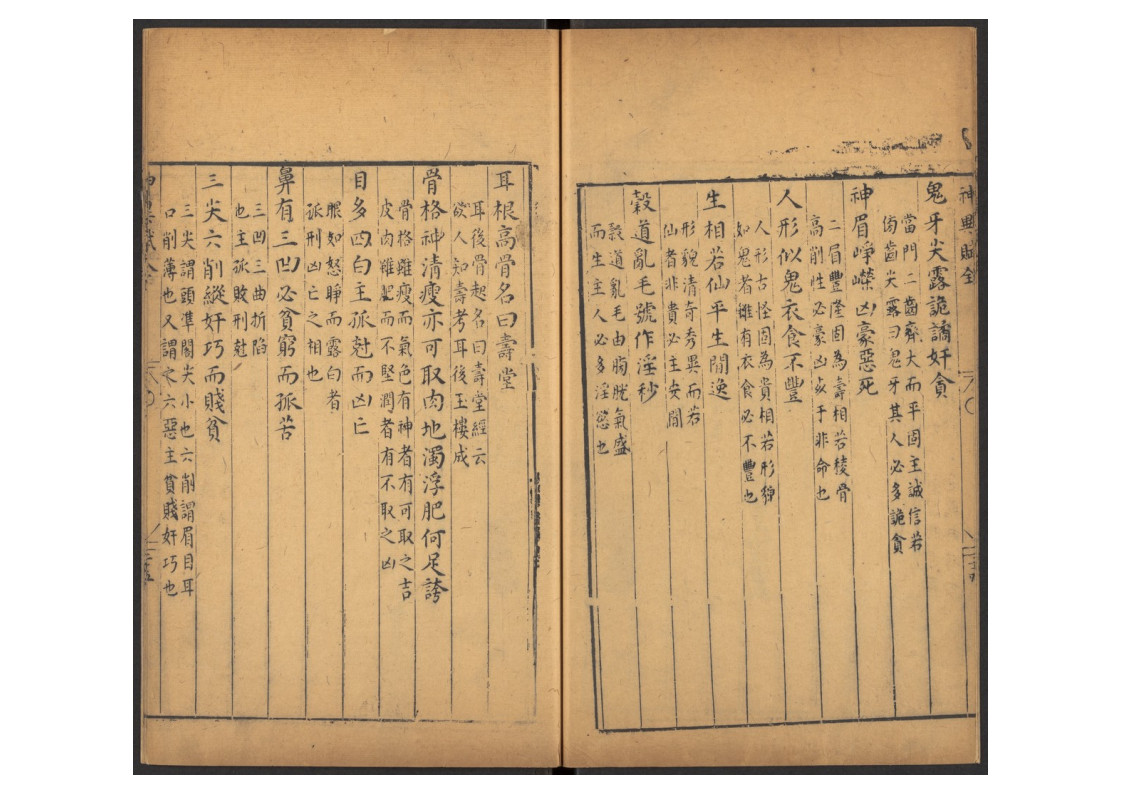 神異賦全
鬼牙尖露詭譎奸貪
當門二齒齊大而平固主誠信若
傍齒尖露曰鬼牙其人必多詭貪
神眉崢嶸凶豪惡死
二眉豐隆固為壽相若稜骨
高削性必豪凶亥于非命也
人形似鬼衣食不豐
人形古怪固為貴相若形猙
如鬼者雖有衣食必不豐也
生相若仙平生閒逸
形貌清奇秀異而若
仙者非貴必主安閒
穀道亂毛號作淫秒
穀道亂毛由膀胱氣盛
而生主人必多淫慾也
耳根高骨名曰壽堂
耳後骨起名曰壽堂經云
欲人知壽考耳後玉樓成
骨格神清瘦亦可取肉地濁浮肥何足誇
骨格雖瘦而氣色有神者有可取之吉
皮肉雖肥而不堅潤者有不取之凶
目多四白主孤尅而凶亡
眼如怒睜而露白者
孤刑凶亡之相也
鼻有三凹必貧窮而孤苦
三凹三曲折陷
也主孤敗刑尅
三尖六削縱奸巧而賤貧
三尖謂頭準閣尖小也六削謂眉目耳
口削薄也又謂之六惡主貧賤奸巧也